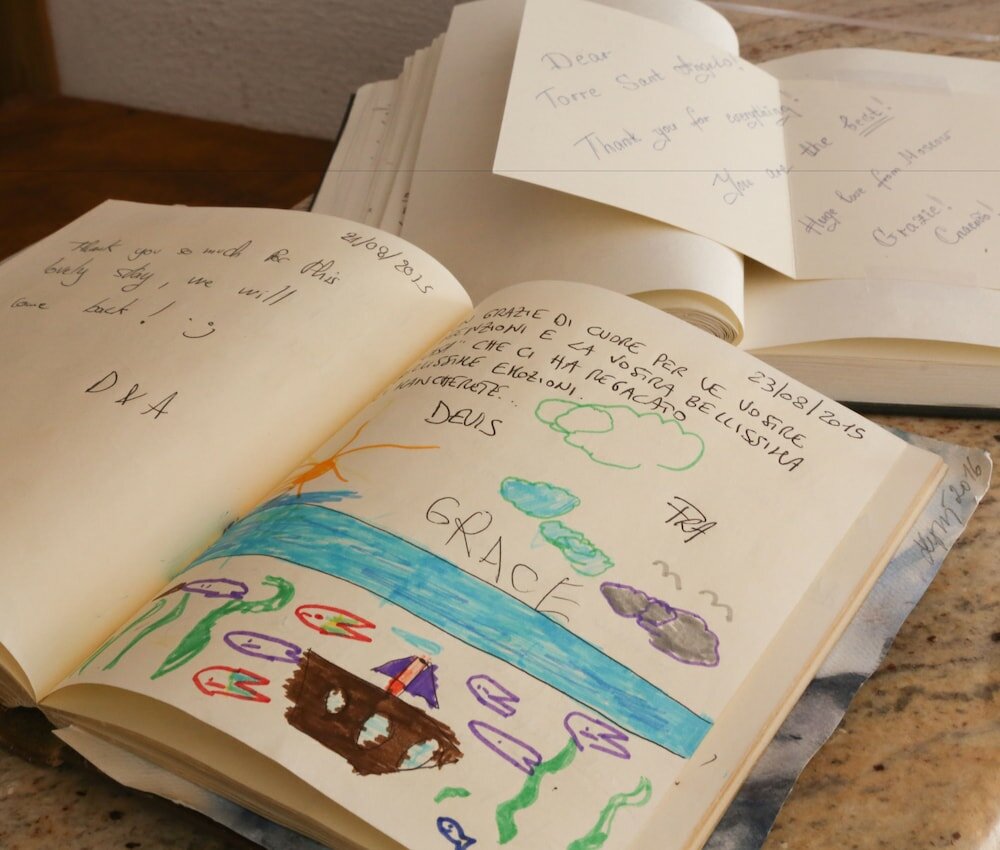 21/08/2015
Thank you so much for this
lovely stay, we will
come back! :)
D & A
23/08/2015
GRAZIE DI CUORE PER LE VOSTRE
E LA VOSTRA BELLISSIMA
CHE CI HA REGALATO
EMOZIONI.
DEVIS
FRA
GRACE
2016
Dear
Torre Sant Angelo!
Thank you for everything!
You are the best!
Huge love from Moscow
Grazie!
Спасибо!